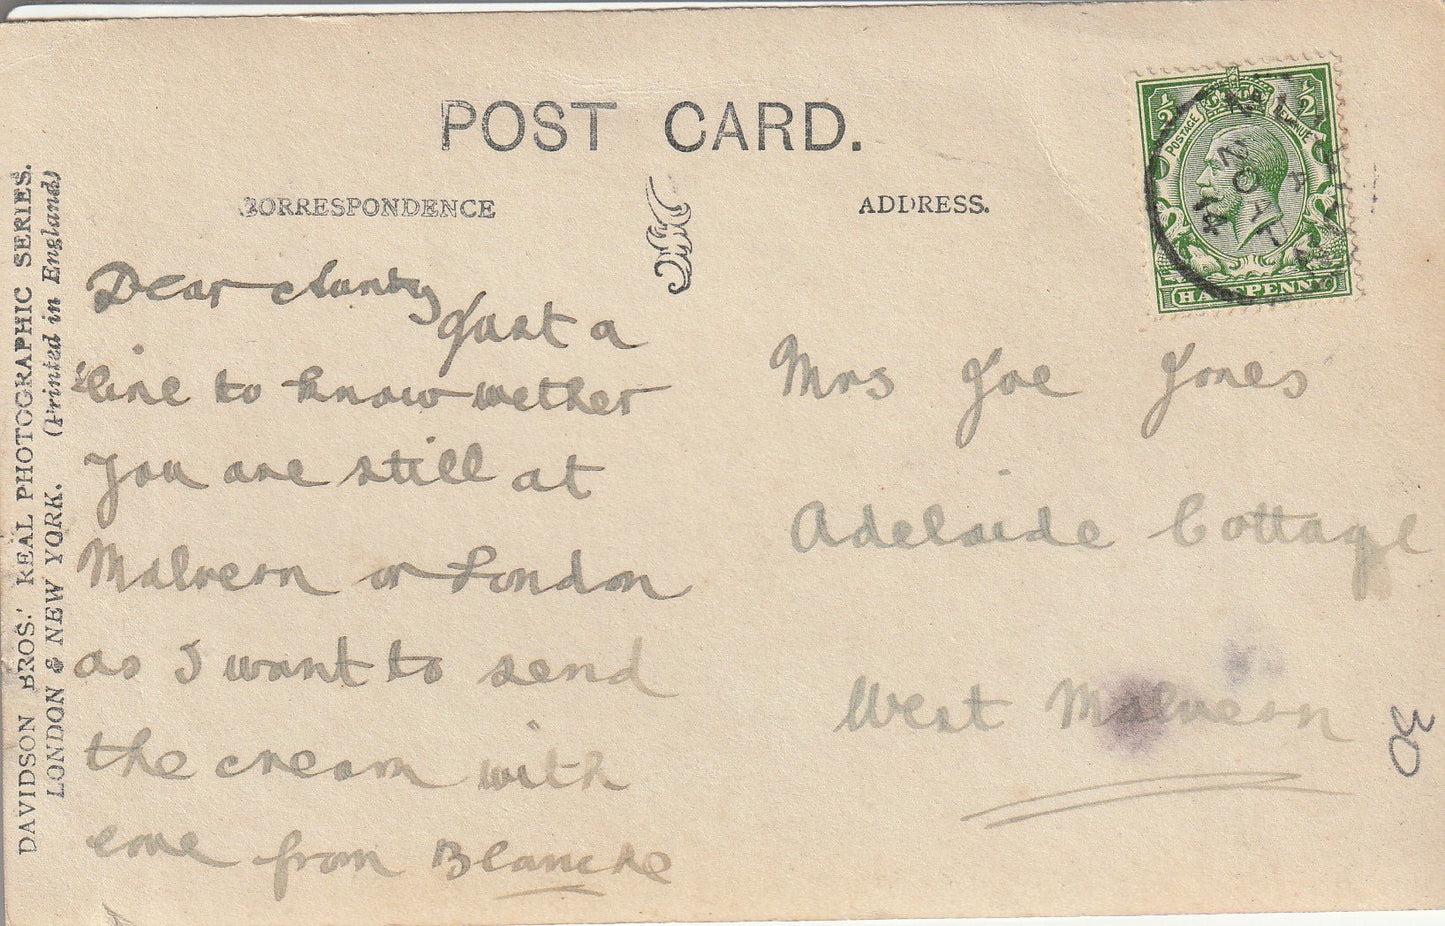 POST CARD.
CORRESPONDENCE
ADDRESS.
DAVIDSON BROS.' REAL PHOTOGRAPHIC SERIES.
LONDON & NEW YORK. (Printed in England)
Dear Aunty
Just a
line to know wether
you are still at
Malvern or London
as I want to send
the cream with
love from Blanche
Mrs Joe Jones
Adelaide Cottage
West Malvern
30
1/2 1/2
POSTAGE REVENUE
HALFPENNY
A
20 14